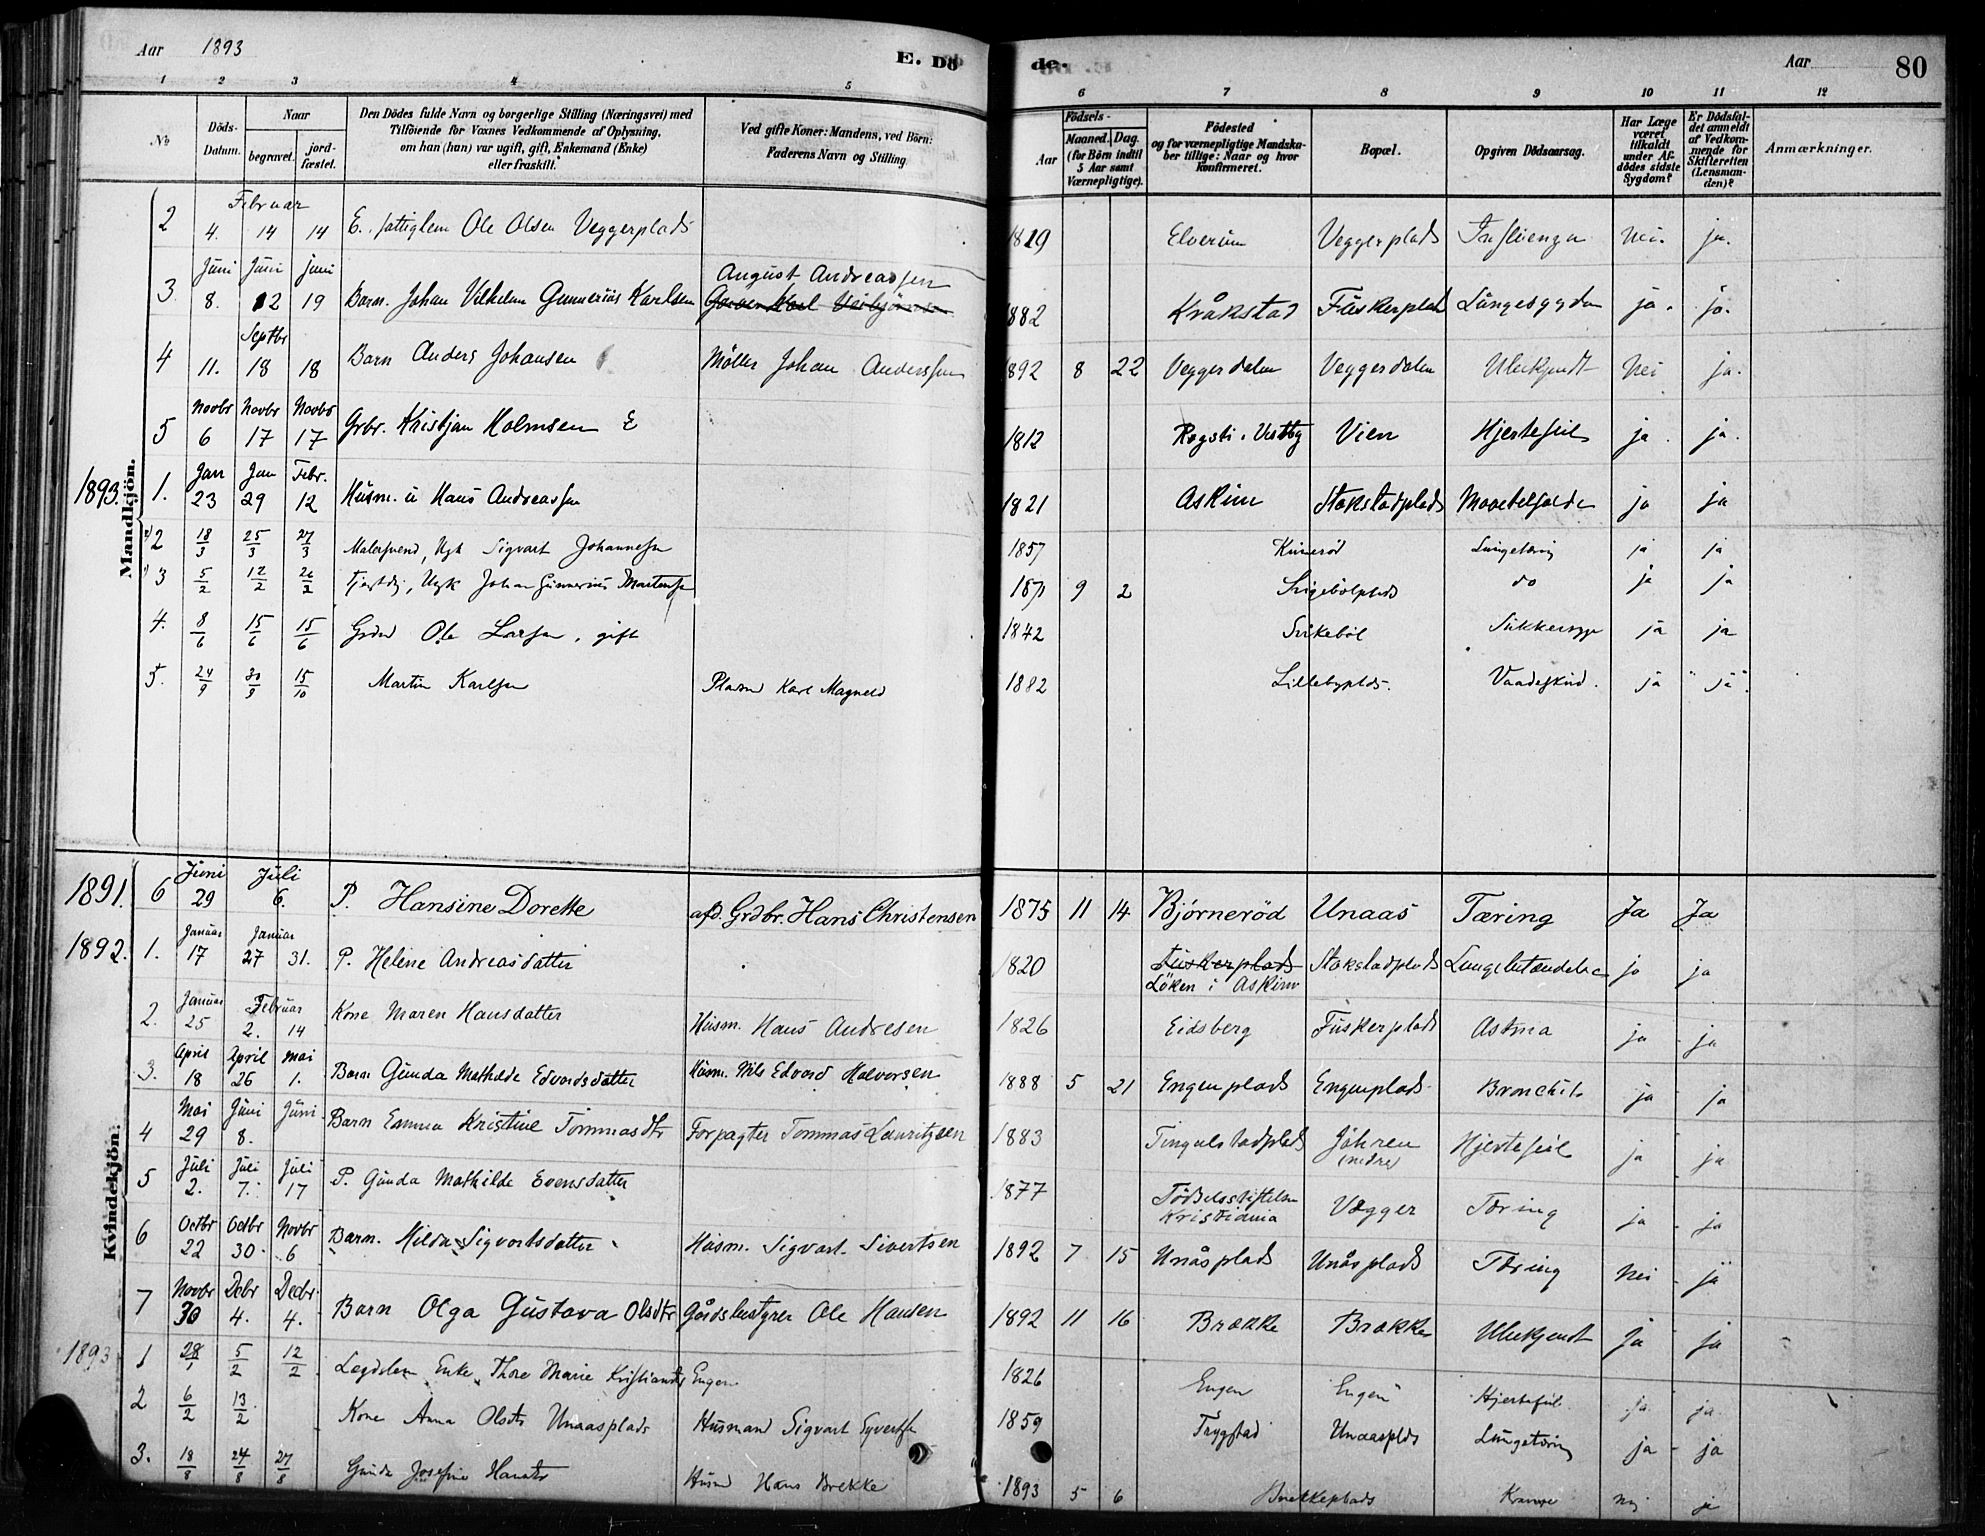 Aar 1893 E. Dö de. Aar 80
1 2 3 4 5 6 7 8 9 10 11 12
№ Döds-Datum. Naar begravet. jordfæstet. Den Dödes fulde Navn og borgerlige Stilling (Næringsvei) med Tilföiende for Voxnes Vedkommende af Oplysning, om han (hun) var ugift, gift, Enkemand (Enke) eller fraskilt. Ved gifte Koner: Mandens, ved Börn: Faderens Navn og Stilling. Födsels- Aar Maaned. Dag. (for Börn indtil 5 Aar samt Værnepligtige). Födested og for værnepligtige Mandskaber tillige: Naar og hvor konfirmeret. Bopæl. Opgiven Dödsaarsag. Har Læge været tilkaldt under Afdödes sidste Sygdom? Er Dödsfaldet anmeldt af Vedkommende for Skifteretten (Lensmanden)? Anmærkninger.
Mandkjön.
Februar
2 4. 14 14 E. fattiglem Ole Olsen Veggerplads 1819 Elverum Veggerplads Influenza Nei. ja.
Juni Juni juni August Andreassen
3 8. 12 19 Barn. Johan Vilhelm Gunnerius Karlsen 1882 Kråkstad Fuskerplads Lungesygdom ja. ja.
Septbr
4 11. 18 18 Barn Anders Johansen Möller Johan Anderssen 1892 8 22 Veggerdalen Veggerdalen Ubekjendt Nei ja.
Novbr Novbr Novbr
5 6 17 17 Grbr. Kristjan Holmsen E 1812 Rogsti i Vestby Vien Hjertefeil ja. ja.
Jan Jan Febr.
1893. 1. 23 29 12 Husm. u Hans Andreassen 1821 Askim Stokstadplads ja ja
2 18/3 25/3 27/3 Malersvend, Ugk Sigvart Johannessen 1857 Lungetæring ja ja
3 5/2 12/2 Johan Gunnerius Martinsen 9 2 do ja ja
4. 8/6 15/6 15/6 Grdbr Ole Larsen, gift 1842 Svikebøl Sukkersyge ja ja
5. 24/9 30/9 15/10 Martin Karlsen Pladsm Karl Magnus 1882 Lillebyplds. Vaadeskud. ja " ja".
Kvindekjön.
Juni Juli
1891. 6 29 6. P. Hansine Dorette afd. Grdbr. Hans Christensen 1875 11 14 Bjørnerød Unaas Tæring Ja Ja
Januar Januar
1892. 1. 17 27 31. P. Helene Andreasdatter 1820 Fuskerplads Løken i Askim Stokstadplads Lungebetændelse ja ja
Januar Februar
2. 25 2. 14 Kone Maren Hansdatter Husm. Hans Andresen 1826 Eidsberg Fuskerplads Astma ja - ja
April April Mai
3. 18 26 1. Barn Gunda Mathilde Edvardsdatter Husm. Nils Edvard Halvorsen 1888 5 21 Engenplads Engenplads Bronchit ja - ja
Mai Juni Juni
4 29 8. Barn Emma Kristine Tommasdtr Forpagter Tommas Lauritzsen 1883 Tingulstadplads Jøhren (nedre) Hjertefeil ja ja
Juli Juli Juli
5 2. 7. 17 P. Gunda Mathilde Evensdatter 1877 Fødselsstiftelsen Kristiania Vegger Tæring ja - ja
Octbr Octbr Novbr
6 22 30. 6 Barn. Hilda Sigvartsdatter Husm. Sigvart Sivertsen 1892 7 15 Unåsplads Unåsplads Tæring Nei - ja
Novbr Debr Decbr
7 30 4. 4. Barn Olga Gustava Olsdtr Gårdsbestyrer Ole Hansen 1892 11 16 Brække Brække Ubekjendt Ja ja
1893 1 28/1 5/2 12/2 Lægdslem Enke Thore Marie Kristiansdtr Engen 1826 Engen Engen Hjertefeil. ja ja
2 6/2 13/2 Kone Anna Olsdtr Unaasplads Husmand Sigvart Syvertsen 1859 Trygstad Unaasplds Lungetæring ja - ja
3. 18/8 24/8 27/8 Gunda Josefine Hansdtr Husm Hans Brekke 1893 5 6 Brekkeplads Krampe nej ja